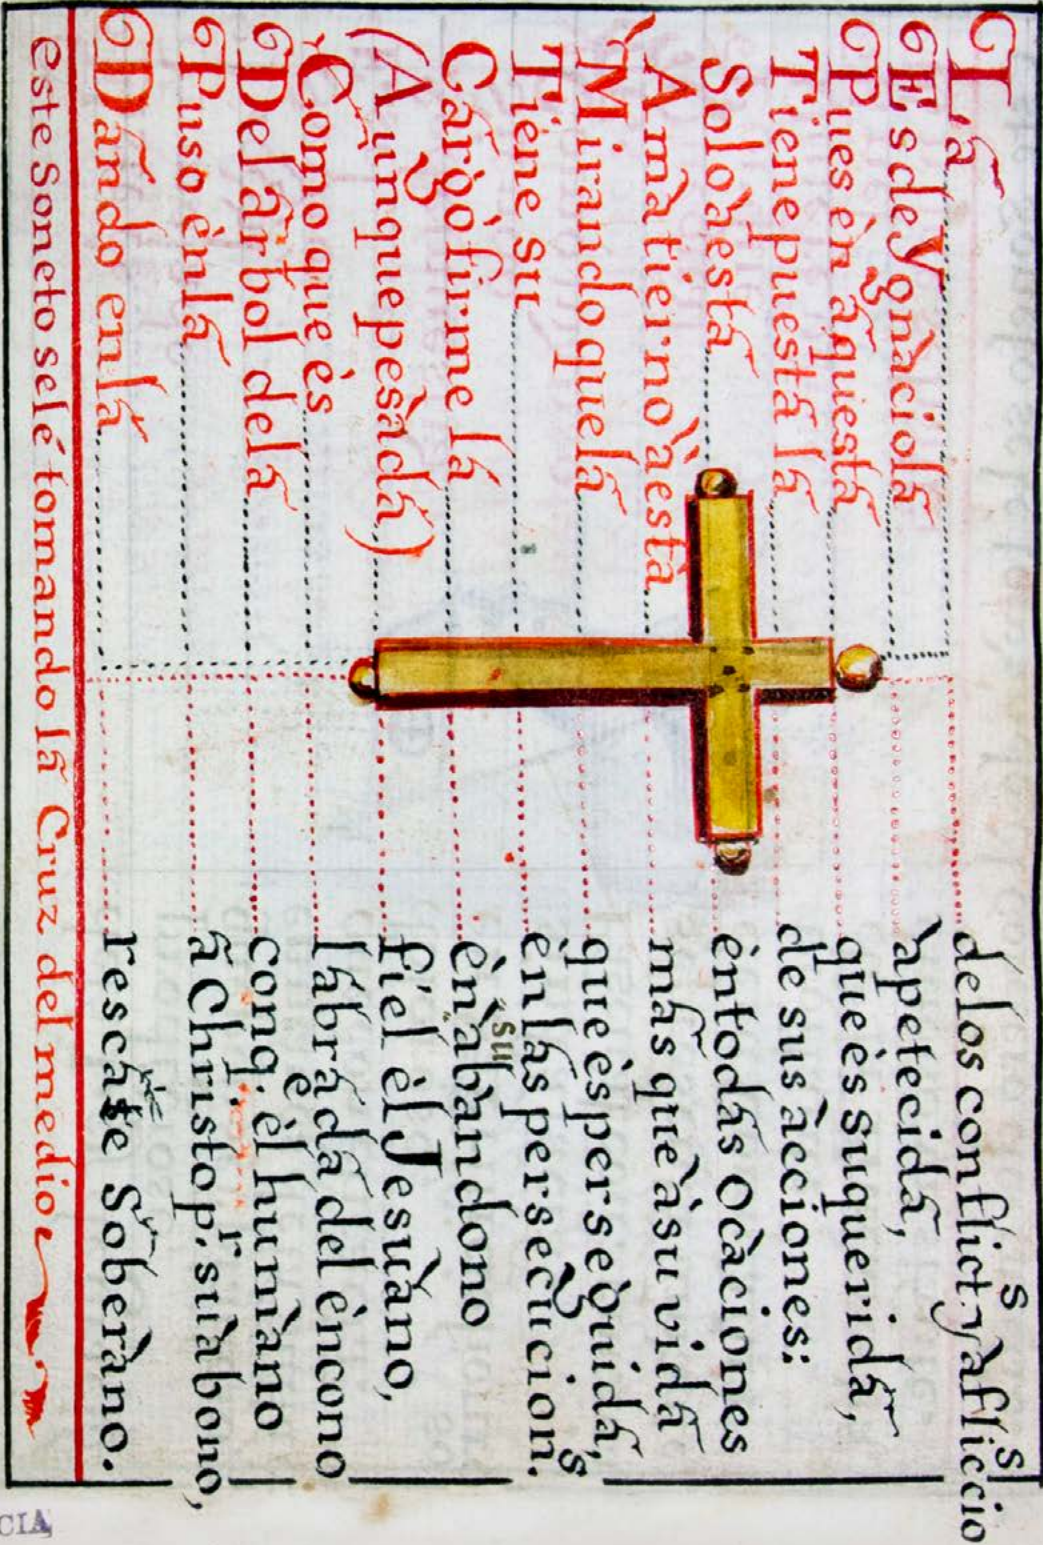 La delos conflict.s y aflicciõs
Es de Ygnàcio là àpetecidá,
Pues èn àquestà què ès su queridá,
Tiene puestá lá de sus àcciones:
Solo àestá èntodás Ocàciones
Ama tierno àestá más què àsu vidá
Mirando que lá què ès persequidá,
Tiene su èn lás persecucion.s
Cárgò firme lá èn su àbandono
(Aunque pesàdá) fiel èl Jesuàno,
Como que ès lábrádá del èncono
Del árbol de lá conq.e èl humàno
Puso èn lá à Christo p.r su àbono,
Dándo en lá rescáte Soberàno.
este Soneto se lé tomando lá Cruz del medio
CIA